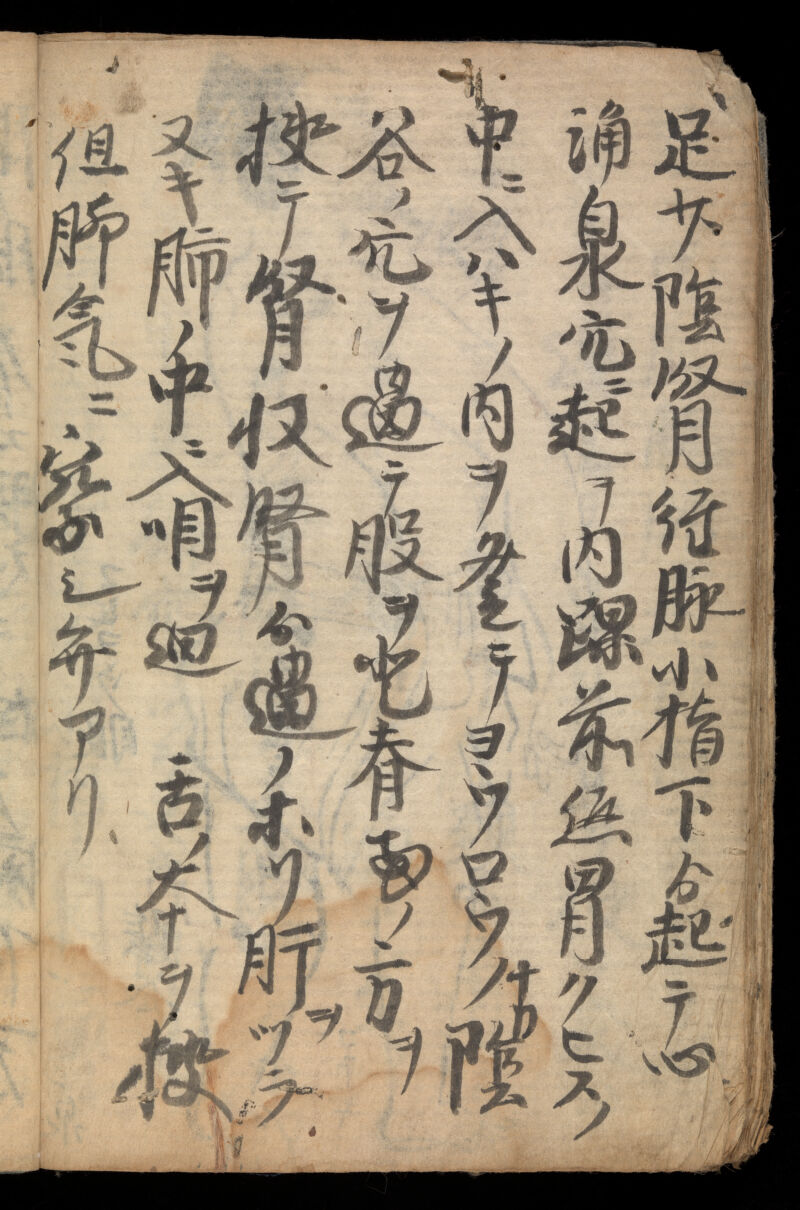 足少陰腎行脉小指下ゟ起テ心
涌泉穴ニ起ヲ内踝前無胃クヒスノ
中ニ入ハキノ内ヲ登テヨウロウノ中カ陰
谷ノ穴ヲ過テ股ヲ
挟テ腎収腎ゟ過ノホリ肝ヲツラ
又キ肺ノ中ニ入咽ヲ廻 舌ノ本ヲ挟
但肺氣ニ察シ弁アリ